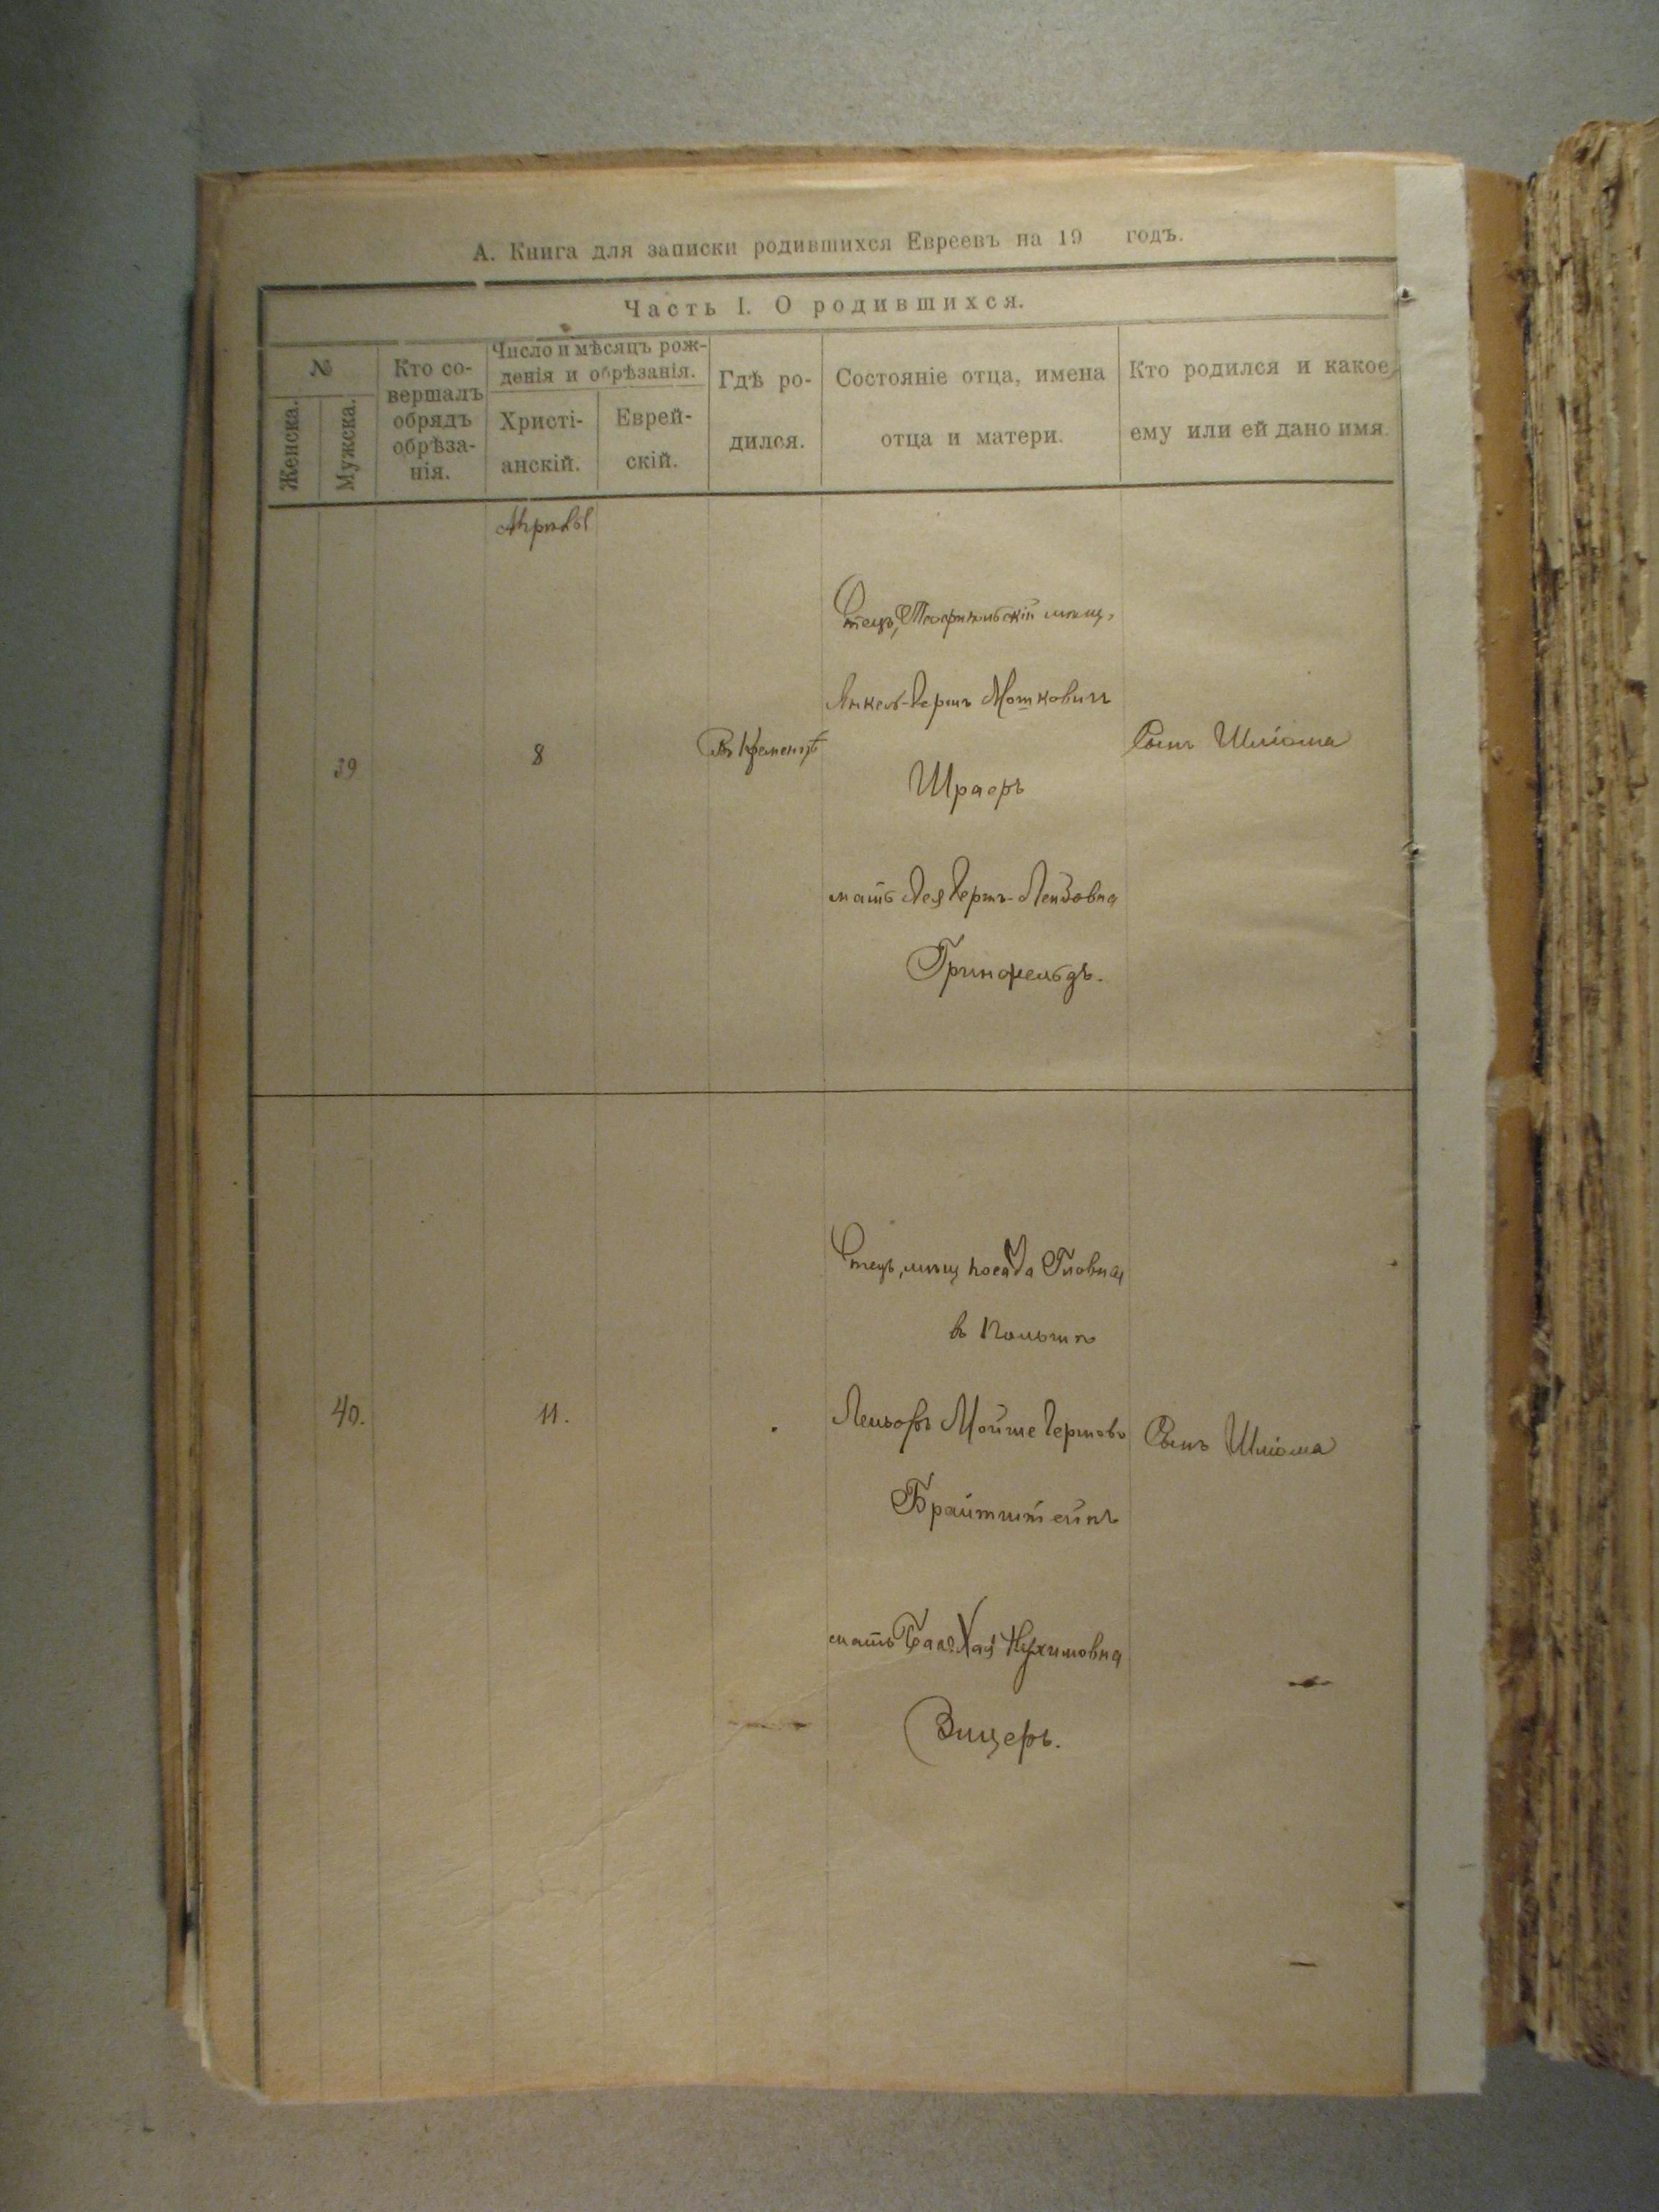 А. Книга для записки родившихся Евреевъ на 19 годъ.
Часть I. О родившихся.
№
Женска.
Мужска.
Кто со-
вершалъ
обрядъ
обрѣза-
нія.
Число и мѣсяцъ рож-
денія и обрѣзанія.
Христі-
анскій.
Еврей-
скій.
Гдѣ ро-
дился.
Состояніе отца, имена
отца и матери.
Кто родился и какое
ему или ей дано имя.
39
8
Въ Кременцѣ
Отецъ, мѣщ.
Янкель-Гершъ Мошковичъ
Шраеръ
мать Лея Гершъ-Лейзовна
Гринфельдъ.
Сынъ Шліома
40.
11.
Отецъ, мѣщ посада Гловна
въ Польшѣ
Мойше Гершовъ
Брайтштейнъ
мать Хая Нухимовна
Зицеръ.
Сынъ Шліома